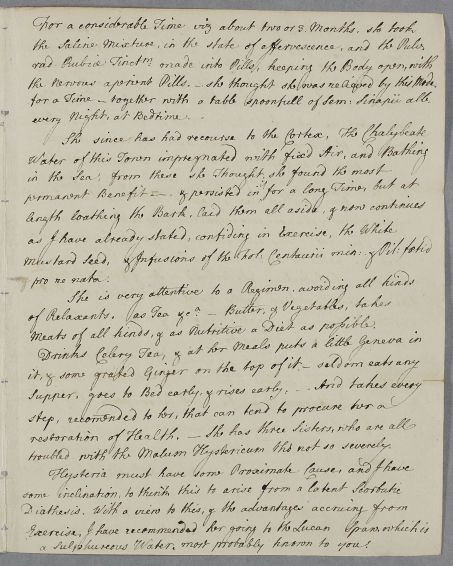 For a considerable Time viz about two or 3. Months. she took
the Saline Mixture, in the state of effervescence, and the Pulv.
rad Rubiæ Tinctm made into Pills, keeping the Body open, with
the Nervous aperient Pills. – she thought she was relieved by this Mode.
for a Time – together with a table spoonfull of Sem: Sinapii alb.
every Night, at Bedtime. –
She since has had recourse to the Cortex, The Chalybeate
Water of this Town impregnated with fixed Air, and Bathing
in the Sea; from these she Thought, she found the most
permanent Benefit – & persisted in for a long Time, but at
length loathing the Bark, laid them all aside, & now continues
as I have already stated, confiding in Exercise, the White
Mustard Seed, & Infusions of the hot: Centaurii min: & Pil: fœtid
pro re nata.
She is very attentive to a Regimen, avoiding all kinds
of Relaxants. (as Tea &ca – Butter, & Vegetables, takes
Meats of all kinds, & as Nutritive a Diet as possible.
Drinks Celery Tea, & at her Meals puts a little Geneva in
it, & some grated Ginger on the top of it – seldom eats any
Supper, goes to Bed early, & rises early. – And takes every
step, recomended to her, that can tend to procure her a
restoration of Health. – She has three Sisters, who are all
troubled with the Malum Hystericum tho not so severely.
Hysteria must have some Proximate Cause, and I have
some inclination, to think this to arise from a latent Scorbutic
Diathesis. With a view to this, & the advantages accruing from
Exercise, I have recommended her going to the Lucan Spaw, which is
a Sulphureous Water, most probably known to you.